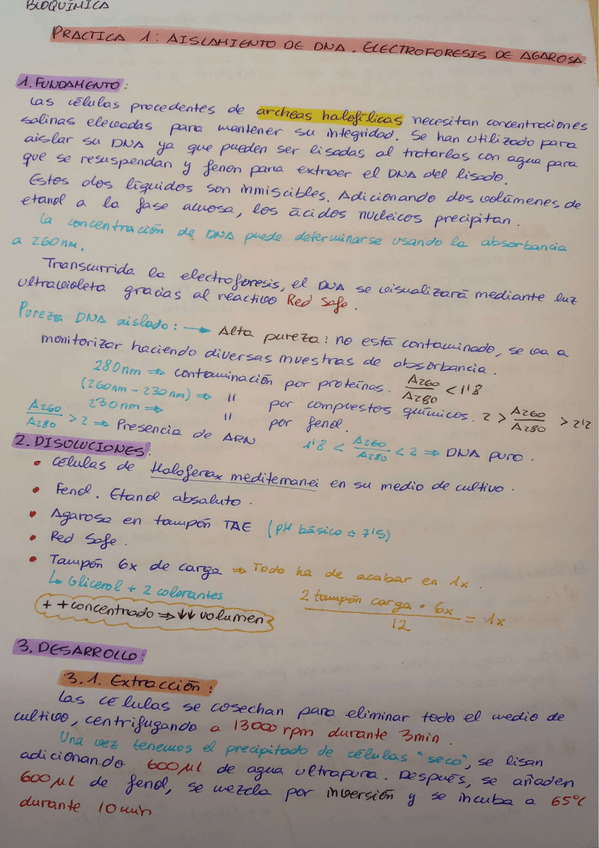 BIOQUÍMICA
PRACTICA 1: AISLAMIENTO DE DNA. ELECTROFORESIS DE AGAROSA
1. FUNDAMENTO:
Las células procedentes de archeas halofílicas necesitan concentraciones
salinas elevadas para mantener su integridad. Se han utilizado para
aislar su DNA ya que pueden ser lisadas al tratarlas con agua para
que se resuspendan y fenon para extraer el DNA del lisado.
Estos dos líquidos son inmiscibles. Adicionando dos volúmenes de
etanol a la fase acuosa, los ácidos nucleicos precipitan.
La concentración de DNA puede determinarse usando la absorbancia
a 260nm.
Transcurrida la electroforesis, el DNA se visualizará mediante luz
ultravioleta gracias al reactivo Red Safe.
Pureza DNA aislado: → Alta pureza: no está contaminado, se va a
monitorizar haciendo diversas muestras de absorbancia.
280nm ⇒ contaminación por proteínas. A260/A280 < 1'8
(260nm - 230nm) ⇒ " por compuestos químicos. 2 > A260/A280 > 2'2
230nm ⇒ " por fenol.
A260/A280 > 2 ⇒ Presencia de ARN 1'8 < A260/A280 < 2 ⇒ DNA puro.
2. DISOLUCIONES:
• Células de Haloferax mediterranei en su medio de cultivo.
• Fenol. Etanol absoluto.
• Agarosa en tampón TAE (pH básico ± 7'5)
• Red Safe.
• Tampón 6x de carga ⇒ Todo ha de acabar en 1x.
↳ Glicerol + 2 colorantes 2 tampón carga · 6x / 12 = 1x
+ + concentrado ⇒ ↓↓ volumen
3. DESARROLLO:
3.1. Extracción:
Las células se cosechan para eliminar todo el medio de
cultivo, centrifugando a 13000 rpm durante 3min.
Una vez tenemos el precipitado de células "seco", se lisan
adicionando 600µl de agua ultrapura. Después, se añaden
600µl de fenol, se mezcla por inversión y se incuba a 65ºC
durante 10min